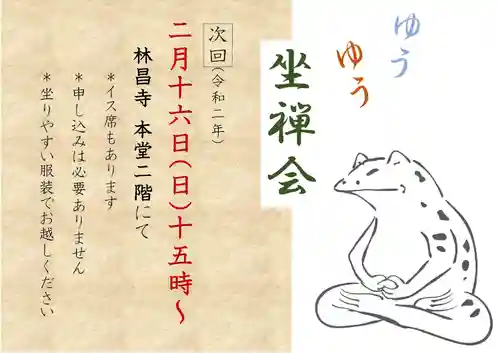 ゆう
ゆう
坐禅会
次回(令和二年)
二月十六日(日)十五時～
林昌寺 本堂二階にて
＊イス席もあります
＊申し込みは必要ありません
＊坐りやすい服装でお越しください